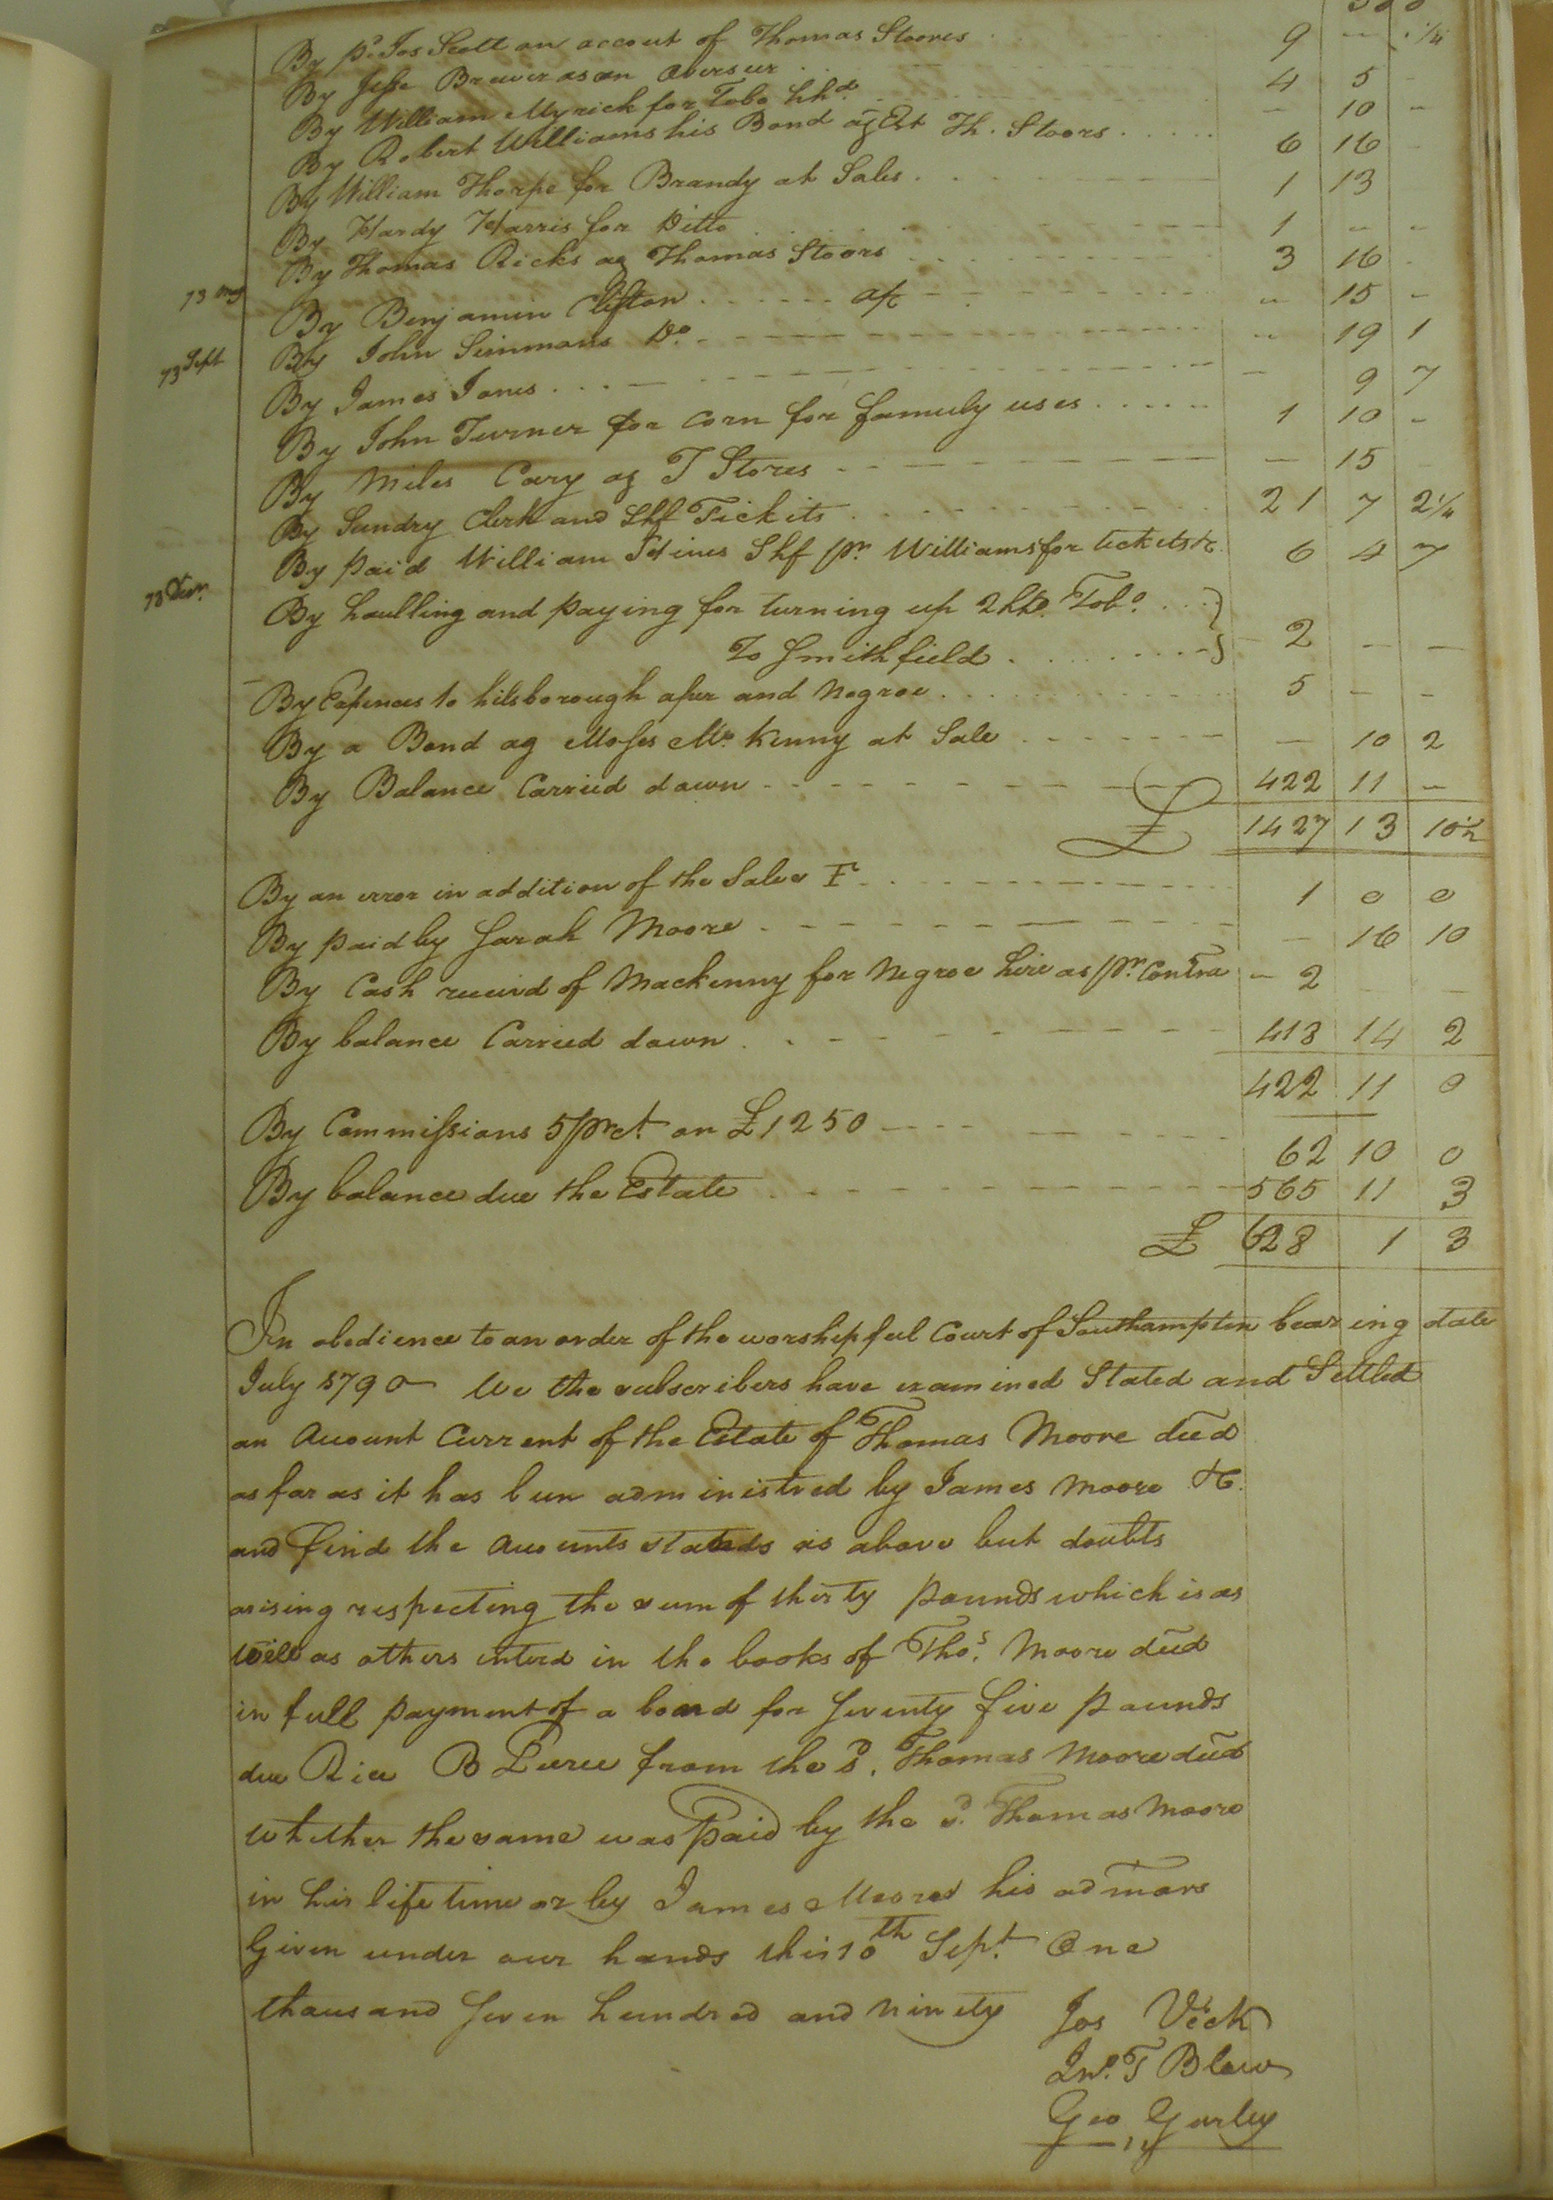 By pd. Jos Scott an accout of Thomas Stoores 9 – 1/4
By Jesse Brewer as an Oversur 4 5 -
By William Myrick for Tobo hhd – 10 –
By Robert Williams his Bond ag Est Th. Stoors 6 16 -
By William Thorpe for Brandy at Sales 1 13
By Hardy Harris for Ditto 1 – –
By Thomas Ricks ag Thomas Stoors 3 16
73 Aug By Benjamin Clifton a/c – 15 –
73 Sept By John Simmons Do. – 19 1
By James Jones – 9 7
By John Turner for corn for famuly uses 1 10 –
By Miles Cary ag T Stores – 15
By Sundry Clerk and Shf Tickits 21 7 2 1/4
By paid William Hines Shf pr. Williams for tickits &c. 6 4 7
73 By haulling and paying for turning up 2 hhd. Tobo.
To Smithfield 2 – –
By Expences to hilsborough after and Negroe 5 – –
By a Bond ag Moses Mc.Kinny at Sale – 10 2
By Balance Carried down 422 11 –
£ 1427 13 10 1/2
By an error in addition of the Sales F 1 0 0
By paid by Sarah Moore – 16 10
By Cash receivd of Mackenny for Negroe hire as pr. Contra – 2 – –
By balance Carried down 418 14 2
422 11 0
By Commissions 5 pr ct. on £1250 62 10 0
By balance due the Estate 565 11 3
£ 628 1 3
In obedience to an order of the worshipful Court of Southampton bearing date
July 1790 We the subscribers have examined Stated and Settled
an Account Current of the Estate of Thomas Moore decd
as far as it has bun administred by James Moore &c.
and find the Accounts stands as above but doubts
arising respecting the sum of thirty pounds which is as
well as others interd in the books of Thos. Moore decd
in full payment of a bond for Seventy five pounds
due Rice B Peirce from the sd. Thomas Moore decd
whether the same was Paid by the sd. Thomas Moore
in his life time or by James Moore his admors
Given under our hands this 10th Sept. One
thousand Seven hundred and Ninety Jos Vick
Jno. T Blow
Geo Gurley